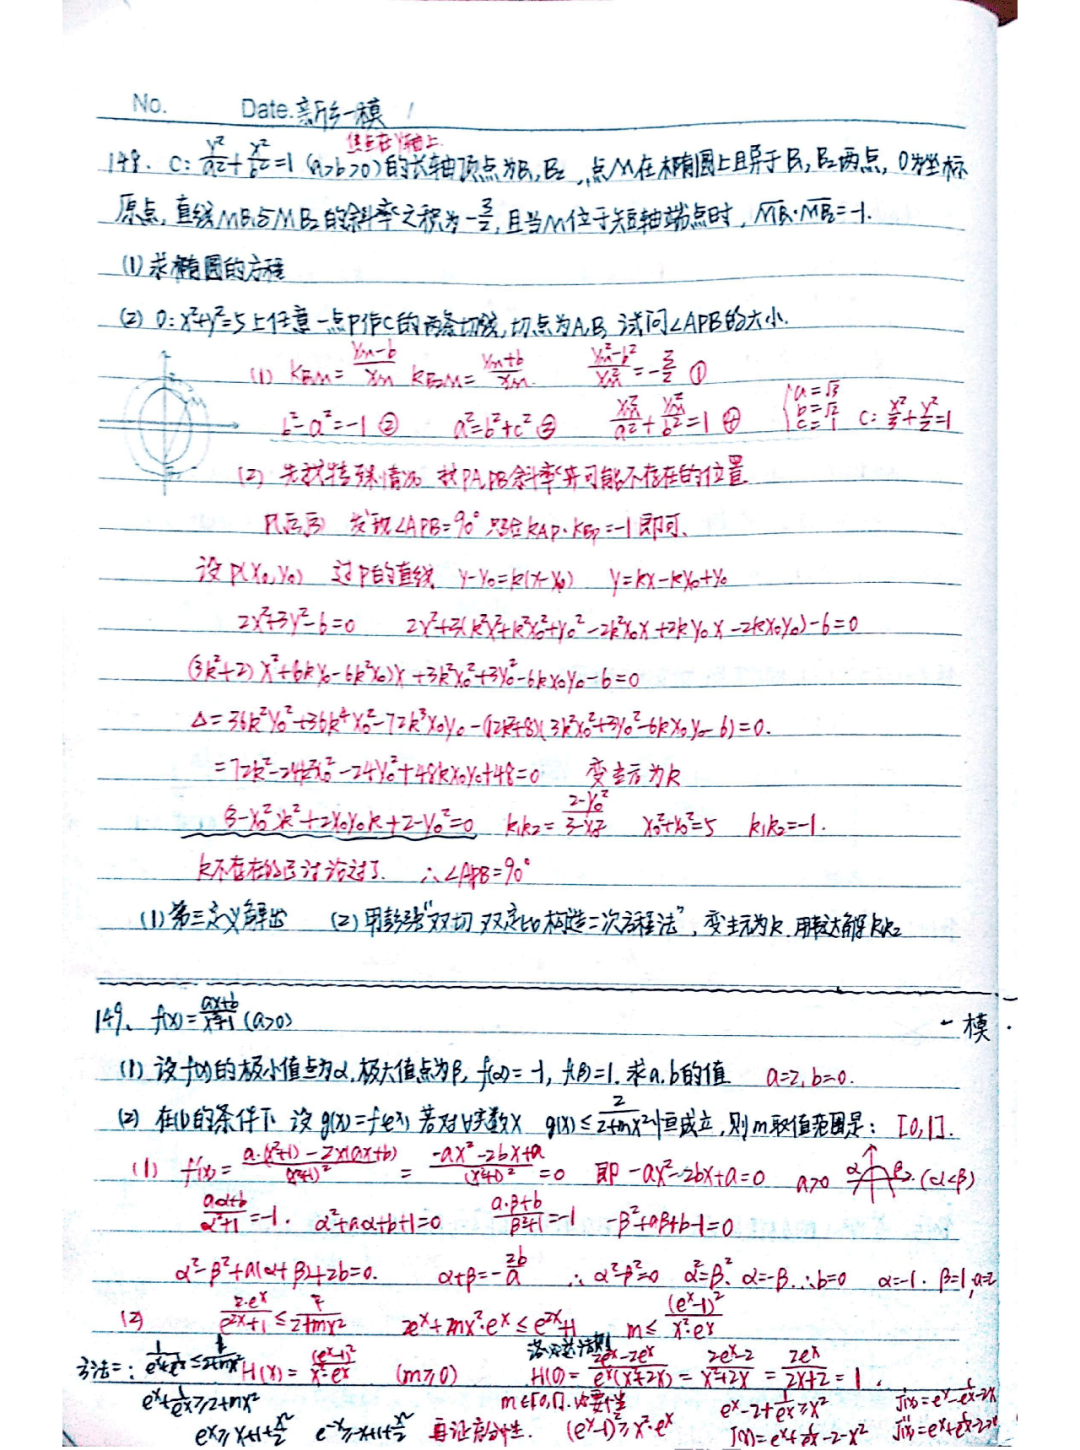 No. Date. 新乡一模
焦点在Y轴上
148. C: y²/a²+x²/b²=1 (a>b>0)的长轴顶点为B₁,B₂,点M在椭圆上且异于B₁,B₂两点,O为坐标
原点,直线MB₁与MB₂的斜率之积为-3/2,且当M位于短轴端点时,MB₁·MB₂=-1.
(1)求椭圆的方程
(2) O:x²+y²=5上任意一点P作C的两条切线,切点为A,B,试问∠APB的大小.
(1) kB₁M=(Ym-b)/Xm kB₂M=(Ym+b)/Xm. (Ym²-b²)/Xm²=-3/2 ①
b²-a²=-1 ② a²=b²+c² ③ Xm²/a²+Ym²/b²=1 ④ {a=√3 b=√2 c=1 C: x²/3+y²/2=1
(2) 先找特殊情况 找PA,PB斜率并可能不存在的位置
发现∠APB=90° 只需kAP·kBP=-1即可.
设P(X₀,Y₀) 过P的直线 y-Y₀=k(x-X₀) y=kx-kX₀+Y₀
2x²+3y²-6=0 2x²+3(k²x²+k²X₀²+Y₀²-2k²X₀X+2kY₀X-2kX₀Y₀)-6=0
(3k²+2)X²+(6kY₀-6k²X₀)X+3k²X₀²+3Y₀²-6kX₀Y₀-6=0
Δ=36k²Y₀²+36k⁴X₀²-72k³X₀Y₀-(12k²+8)(3k²X₀²+3Y₀²-6kX₀Y₀-6)=0.
=72k²-24k²X₀²-24Y₀²+48kX₀Y₀+48=0 变主元为k
(3-X₀²)k²+2X₀Y₀k+2-Y₀²=0 k₁k₂=(2-Y₀²)/(3-X₀²) X₀²+Y₀²=5 k₁k₂=-1.
k不存在的已讨论过了. ∴∠APB=90°
(1)第三定义解出 (2)用彭强"双切 双定比构造二次方程法",变主元为k.用韦达解k₁k₂
149. f(x)=(ax+b)/(x²+1) (a>0) 一模.
(1) 设f(x)的极小值点为α,极大值点为β, f(α)=-1, f(β)=1. 求a,b的值 a=2, b=0.
(2) 在(1)的条件下 设g(x)=f(eˣ) 若对∀实数x g(x)≤2/(2+mx²)恒成立,则m取值范围是: [0,1].
(1) f'(x)=(a·(x²+1)-2x(ax+b))/(x²+1)²=(-ax²-2bx+a)/(x²+1)²=0 即-ax²-2bx+a=0 a>0 α β (α<β)
(aα+b)/(α²+1)=-1. α²+aα+b+1=0 (a·β+b)/(β²+1)=1 -β²+aβ+b-1=0
α²-β²+a(α+β)+2b=0. α+β=-2b/a ∴α²-β²=0 α²=β². α=-β.∴b=0 α=-1. β=1,a=2
(2) 2·eˣ/(e²ˣ+1)≤2/(2+mx²) 2eˣ+mx²·eˣ≤e²ˣ+1 m≤(eˣ-1)²/(x²·eˣ)
洛必达法则
方法二: H(x)=(eˣ-1)²/(x²·eˣ) (m≥0) H(0)=(2eˣ-2eˣ)/(eˣ(x²+2x))=(2eˣ-2)/(x²+2x)=2eˣ/(2x+2)=1.
eˣ+1/eˣ≥2+mx² m∈[0,1].必要性 eˣ-2+1/eˣ≥x²
eˣ≥x+1+x²/2 e⁻ˣ≥-x+1+x²/2 再证充分性. (eˣ-1)²≥x²·eˣ J(x)=eˣ+1/eˣ-2-x² J'(x)=eˣ-1/eˣ-2x
J''(x)=eˣ+1/eˣ-2≥0